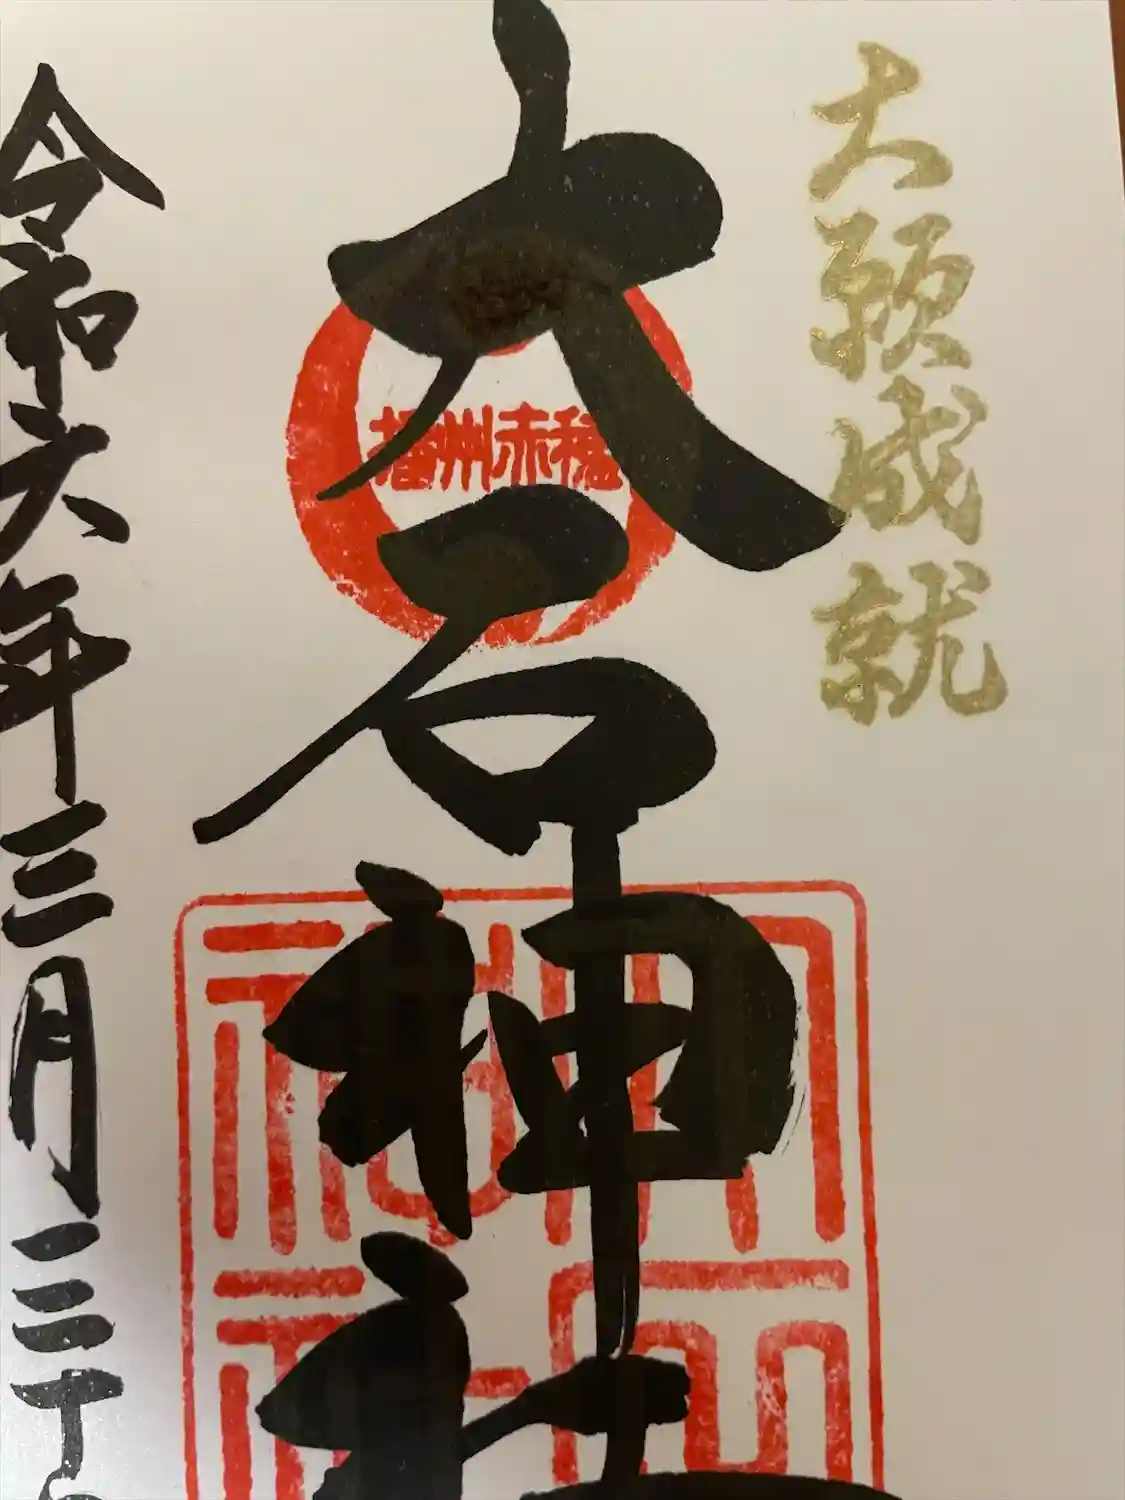 大願成就
大石神社
播州赤穂
大石神社
令和六年三月三十